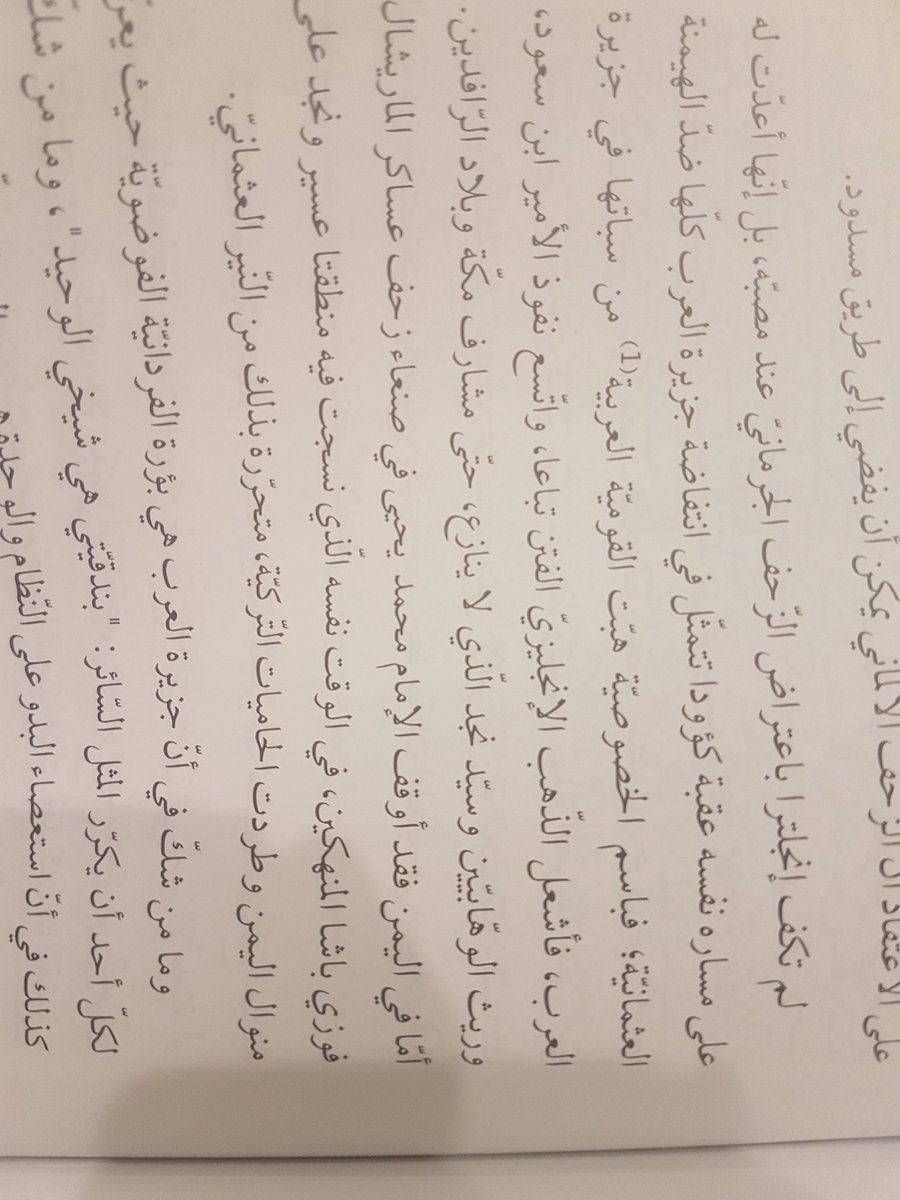 على الاعتقاد أن الزحف الألماني يمكن أن يفضي إلى طريق مسدود.
لم تكف إنجلترا باعتراض الزّحف الجرمانيّ عند مصبّه، بل إنّها أعدّت له
على مساره نفسه عقبة كؤودا تتمثّل في انتفاضة جزيرة العرب كلّها ضدّ الهيمنة
العثمانيّة؛ فباسم الخصوصيّة هبّت القوميّة العربية(1) من سباتها في جزيرة
العرب، فأشعل الذّهب الإنجليزيّ الفتن تباعا، واتّسع نفوذ الأمير ابن سعود،
وريث الوهّابيّين وسيّد نجد الّذي لا ينازع، حتّى مشارف مكّة وبلاد الرّافدين.
أمّا في اليمن فقد أوقف الإمام محمد يحيى في صنعاء زحف عساكر الماريشال
فوزي باشا المنهكين، في الوقت نفسه الّذي نسجت فيه منطقتا عسير ونجد على
منوال اليمن وطردت الحاميات التّركيّة، متحرّرة بذلك من النّير العثمانيّ.
وما من شكّ في أنّ جزيرة العرب هي بؤرة الفردانيّة الفوضويّة حيث
لكلّ أحد أن يكرّر المثل السّائر: "بندقيّتي هي شيخي الوحيد"، وما من شكّ
كذلك في أنّ استعصاء البدو على النّظام والوحدة